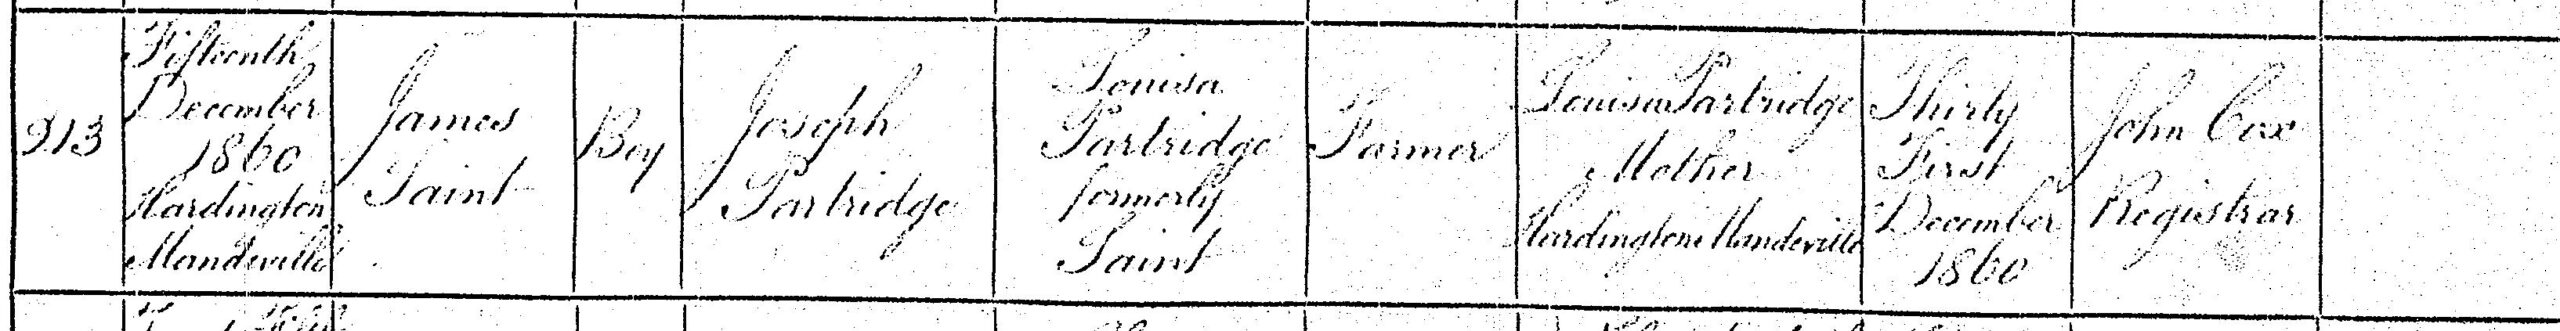 913
Fifteenth
December
1860
Hardington
Mandeville
James
Saint
Boy
Joseph
Partridge
Louisa
Partridge
formerly
Saint
Farmer
Louisa Partridge
Mother
Hardington Mandeville
Thirty
First
December
1860
John Cox
Registrar